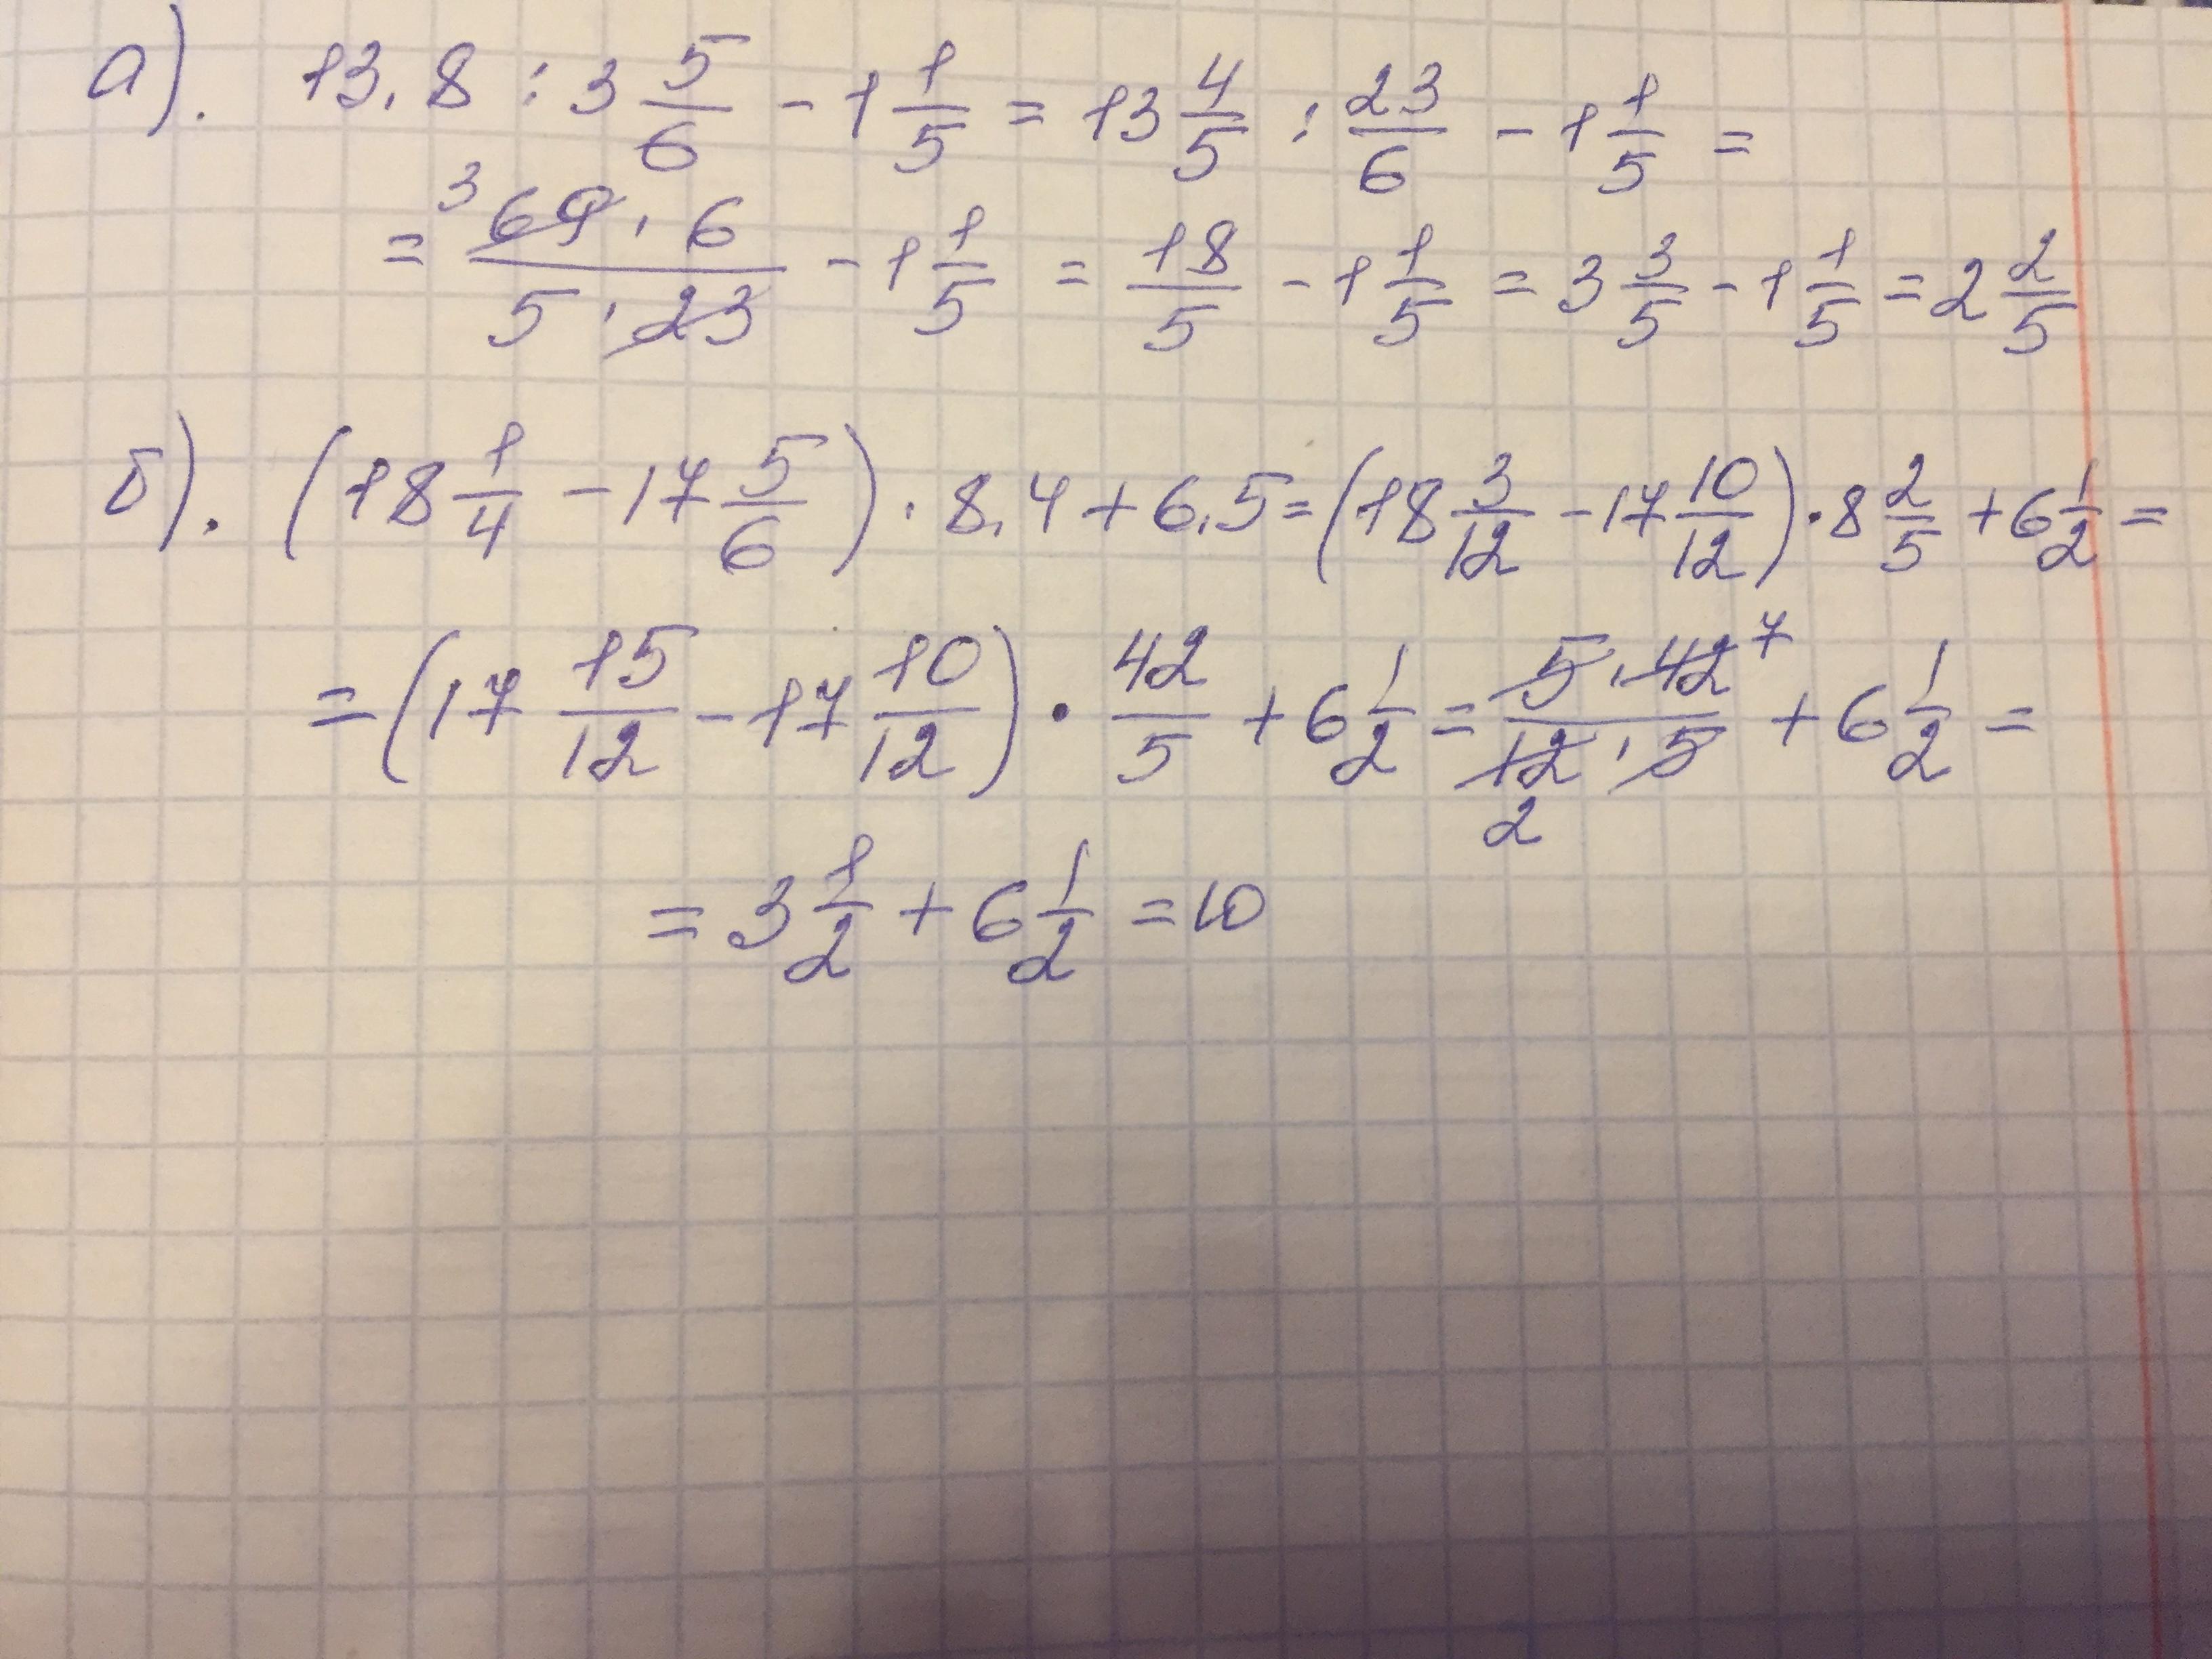 а). 13,8 : 3 5/6 - 1 1/5 = 13 4/5 : 23/6 - 1 1/5 =
= ³69 · 6 / 5 · 23 - 1 1/5 = 18/5 - 1 1/5 = 3 3/5 - 1 1/5 = 2 2/5
б). (18 1/4 - 17 5/6) · 8,4 + 6,5 = (18 3/12 - 17 10/12) · 8 2/5 + 6 1/2 =
= (17 15/12 - 17 10/12) · 42/5 + 6 1/2 = 5 · 42 ⁷ / 12 ₂ · 5 + 6 1/2 =
= 3 1/2 + 6 1/2 = 10